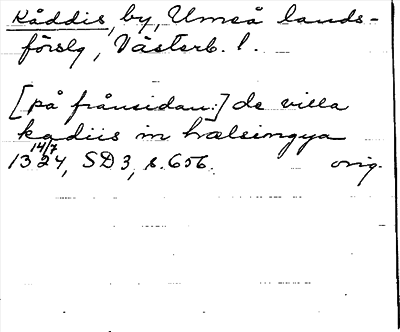 Kåddis, by, Umeå lands-
förslg, Västerb. l.
[på frånsidan:] de villa
kadiis in hælsingya
14/7 1324, SD 3, s. 656. orig.